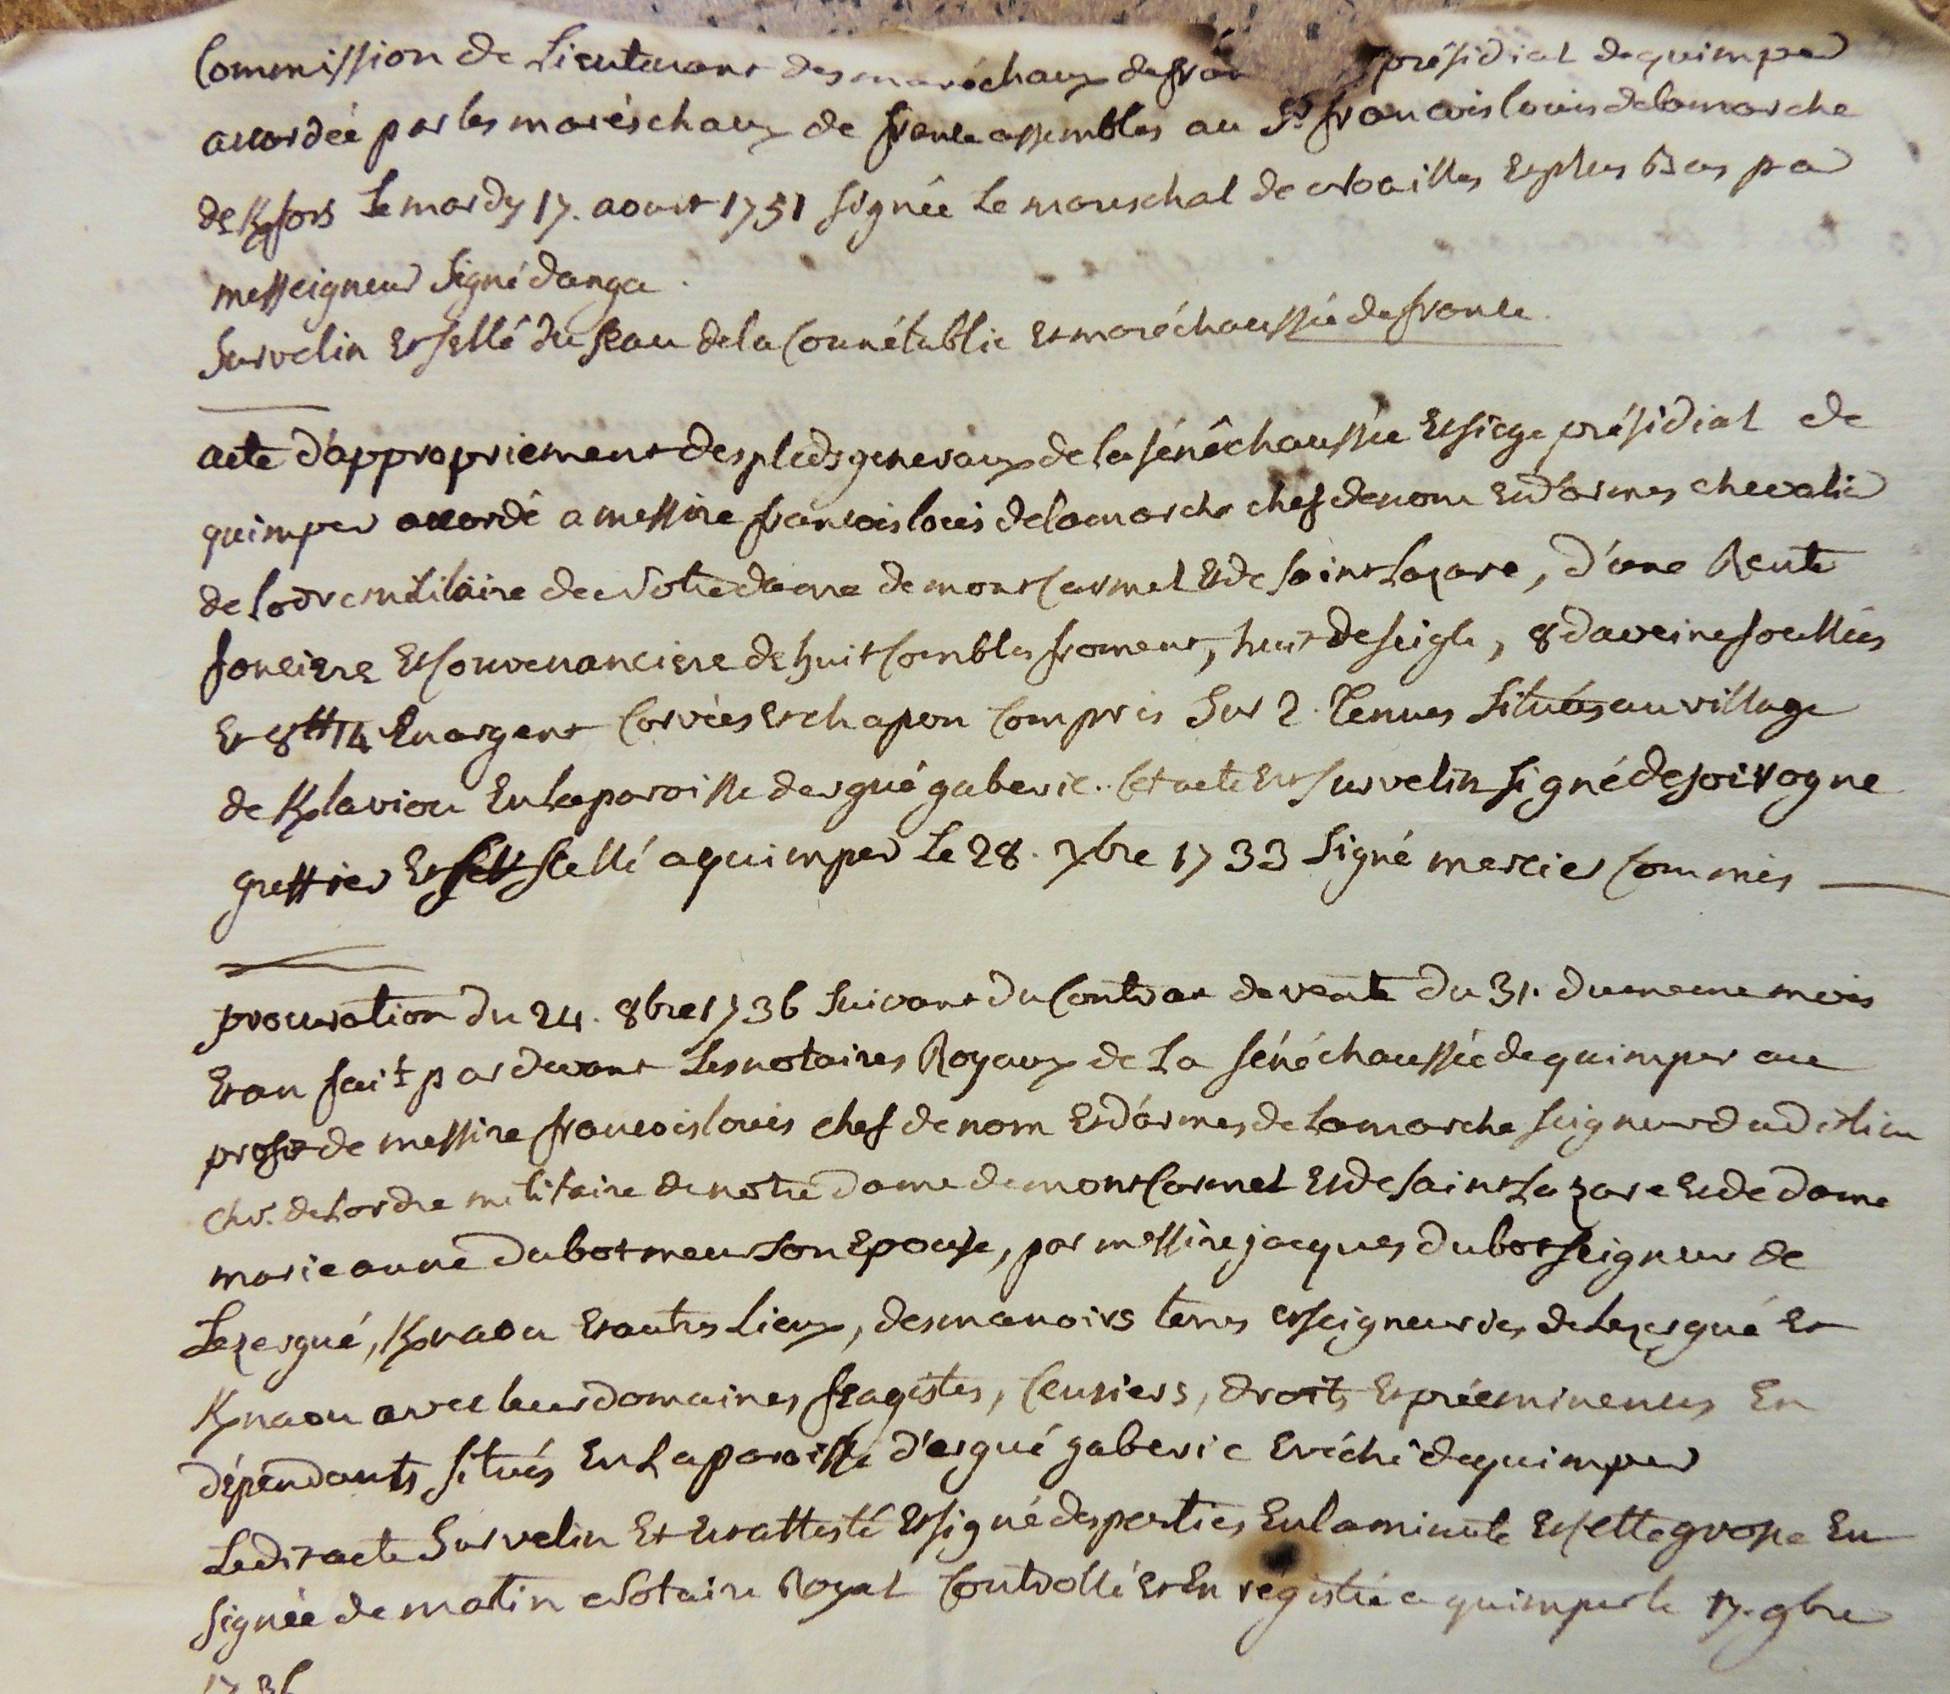 Commission de Lieutenant des maréchaux de fran présidial de quimper
accordée par les maréschaux de france assembles au Sr. francois louis de lamarche
de K/fors Le mardy 17. aoust 1751 signée Le mareschal de Noailles Et plus Bas par
messeigneur signé danga
Sur velin Et sellé du sceau de la Connétablie Et maréchaussée de france.
acte d'appropriement des pleds generaux de la sénéchaussée Et siege présidial de
quimper accordé a messire francois louis de lamarche chef de nom Et d'armes chevalier
de lodre militaire de Notre dame de mont Carmel Et de saint Lazare, d'une Rente
fonciere Et Convenanciere de huit Combles froment, huit de seigle, 8 daveine foullées
Et 8tt 14 En argent Corvées Et chapon Compris Sur 2. Tenues situées au village
de K/laviou En la paroisse dergué gaberic. Cet acte Est Sur velin signé de
greffier Et scellé a quimper Le 28. 7bre 1733 signé mercier Commis
procuration du 24. 8bre 1736 suivant du Contrat de vente du 31. du meme mois
Et an fait par devant Les notaires Royaux de La sénéchaussée de quimper au
profit de messire francois louis chef de nom Et d'armes de Lamarche seigneur dudit lieu
chr. de Lordre militaire de notre dame de mont Carmel Et de saint Lazare Et de dame
marie anne du botmeur son Epouse, par messire jacques du bot seigneur de
Lezergué, K/naou Et autres Lieux, des manoirs terres et seigneuries de Lezergué Et
K/naou avec leur domaines, Censiers, droits Et prééminences En
dépendants situés En La paroisse d'ergué gaberic Evéché de quimper
Ledit acte Sur velin Et Est attesté Et signé des parties En la minute Et cette grosse En
signée de martin Notaire Royal Controllé Et En régistré a quimper le 17. 9bre
1736